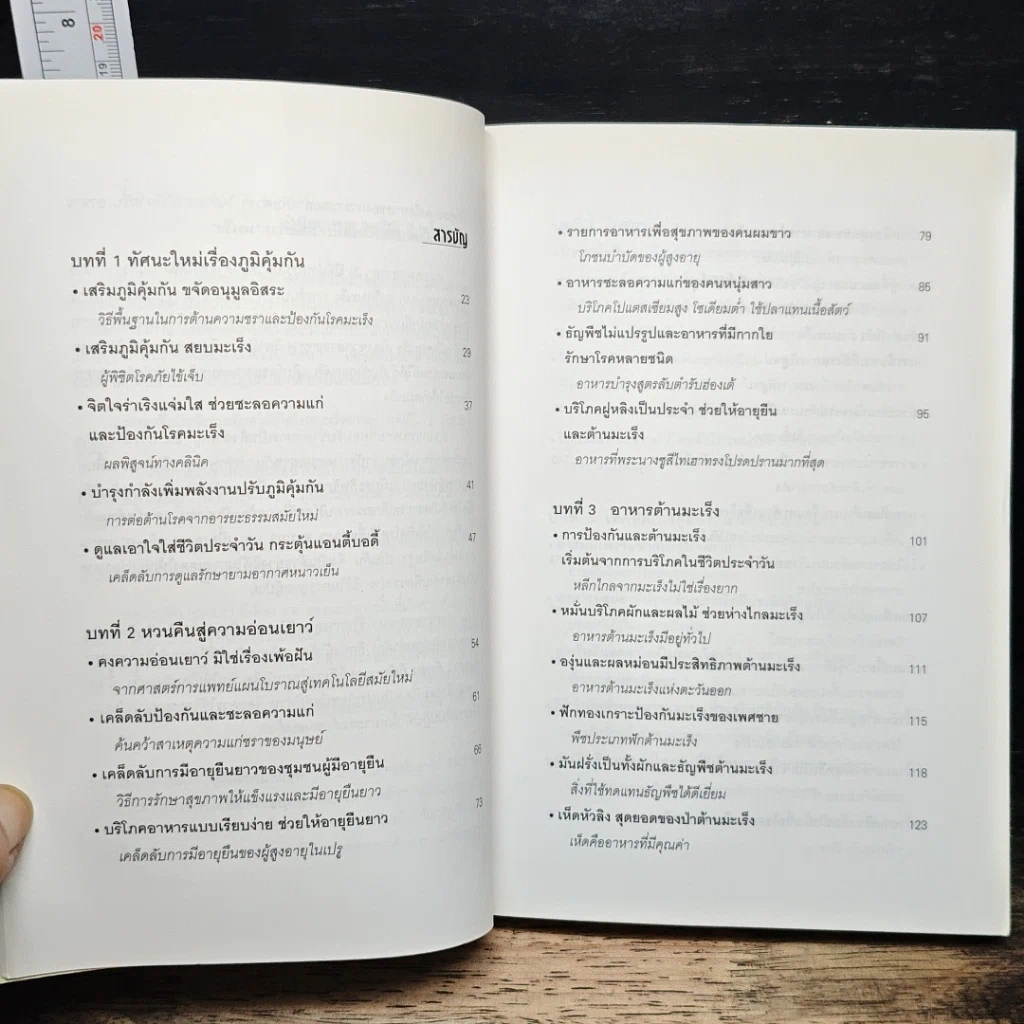 8
20
19
สารบัญ
บทที่ 1 ทัศนะใหม่เรื่องภูมิคุ้มกัน
• เสริมภูมิคุ้มกัน ขจัดอนุมูลอิสระ 23
วิธีพื้นฐานในการต้านความชราและป้องกันโรคมะเร็ง
• เสริมภูมิคุ้มกัน สยบมะเร็ง 29
ผู้พิชิตโรคภัยไข้เจ็บ
• จิตใจร่าเริงแจ่มใส ช่วยชะลอความแก่ 37
และป้องกันโรคมะเร็ง
ผลพิสูจน์ทางคลินิค
• บำรุงกำลังเพิ่มพลังงานปรับภูมิคุ้มกัน 41
การต่อต้านโรคจากอารยะธรรมสมัยใหม่
• ดูแลเอาใจใส่ชีวิตประจำวัน กระตุ้นแอนตี้บอดี้ 47
เคล็ดลับการดูแลรักษายามอากาศหนาวเย็น
บทที่ 2 หวนคืนสู่ความอ่อนเยาว์
• คงความอ่อนเยาว์ มิใช่เรื่องเพ้อฝัน 54
จากศาสตร์การแพทย์แผนโบราณสู่เทคโนโลยีสมัยใหม่
• เคล็ดลับป้องกันและชะลอความแก่ 61
ค้นคว้าสาเหตุความแก่ชราของมนุษย์
• เคล็ดลับการมีอายุยืนยาวของชุมชนผู้มีอายุยืน 66
วิธีการรักษาสุขภาพให้แข็งแรงและมีอายุยืนยาว
• บริโภคอาหารแบบเรียบง่าย ช่วยให้อายุยืนยาว 73
เคล็ดลับการมีอายุยืนของผู้สูงอายุในเปรู
• รายการอาหารเพื่อสุขภาพของคนผมขาว 79
โภชนบำบัดของผู้สูงอายุ
• อาหารชะลอความแก่ของคนหนุ่มสาว 85
บริโภคโปแตสเซียมสูง โซเดียมต่ำ ใช้ปลาแทนเนื้อสัตว์
• ธัญพืชไม่แปรรูปและอาหารที่มีกากใย 91
รักษาโรคหลายชนิด
อาหารบำรุงสูตรลับตำรับฮ่องเต้
• บริโภคฝูหลิงเป็นประจำ ช่วยให้อายุยืน 95
และต้านมะเร็ง
อาหารที่พระนางซูสีไทเฮาทรงโปรดปรานมากที่สุด
บทที่ 3 อาหารต้านมะเร็ง
• การป้องกันและต้านมะเร็ง 101
เริ่มต้นจากการบริโภคในชีวิตประจำวัน
หลีกไกลจากมะเร็งไม่ใช่เรื่องยาก
• หมั่นบริโภคผักและผลไม้ ช่วยห่างไกลมะเร็ง 107
อาหารต้านมะเร็งมีอยู่ทั่วไป
• องุ่นและผลหม่อนมีประสิทธิภาพต้านมะเร็ง 111
อาหารต้านมะเร็งแห่งตะวันออก
• ฟักทองเกราะป้องกันมะเร็งของเพศชาย 115
พืชประเภทฟักต้านมะเร็ง
• มันฝรั่งเป็นทั้งผักและธัญพืชต้านมะเร็ง 118
สิ่งที่ใช้ทดแทนธัญพืชได้ดีเยี่ยม
• เห็ดหัวลิง สุดยอดของป่าต้านมะเร็ง 123
เห็ดคืออาหารที่มีคุณค่า